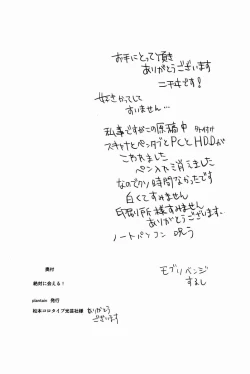 お手にとって頂き
ありがとうございます
ニチヰです!
好きかってして
すいません…
私事ですがこの原稿中
スキャナとペンタブとPCとHDDが
こわれました
ペン入れ消えました
なのでクソ時間なかったです
白くてすみません
印刷所様すみません
ありがとうございます…
ノートパソコン呪う
モブリベンジ
奥付
絶対に会える!
plantain 発行
松本コロタイプ光芸社様 ありがとう
ございます